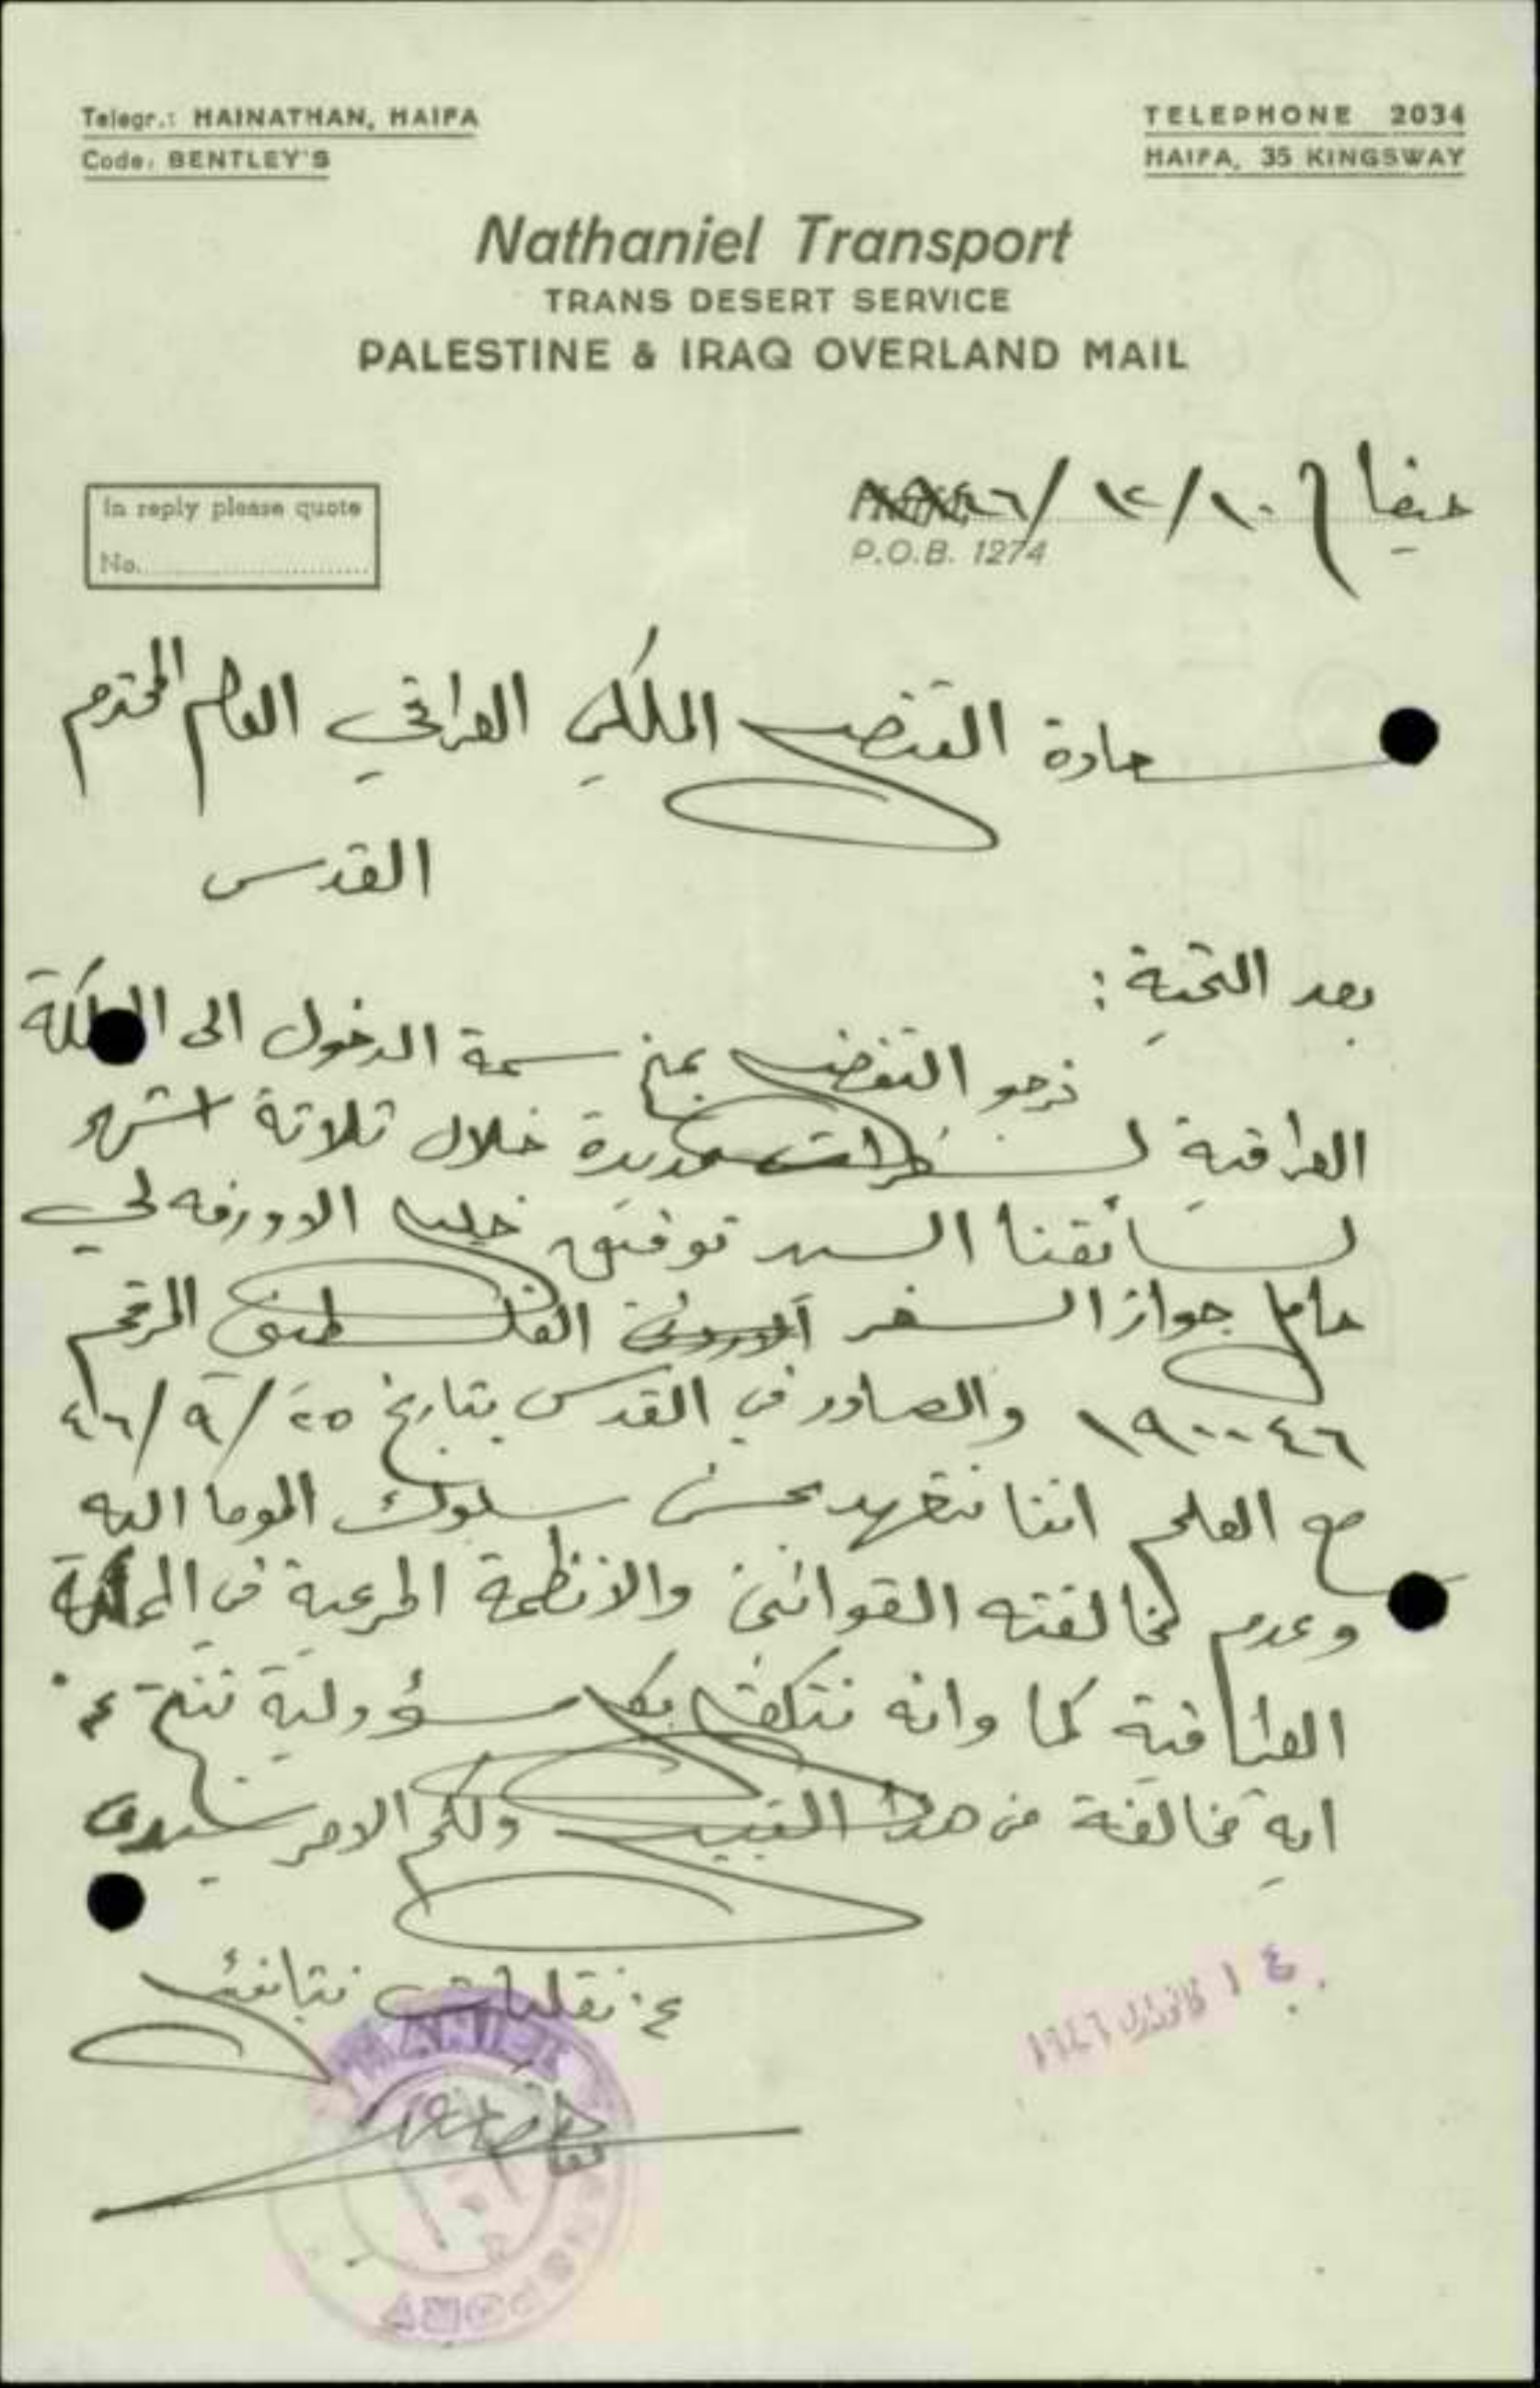 Telegr.: HAINATHAN, HAIFA
Code: BENTLEY'S
TELEPHONE 2034
HAIFA, 35 KINGSWAY
Nathaniel Transport
TRANS DESERT SERVICE
PALESTINE & IRAQ OVERLAND MAIL
In reply please quote
No.
حيفا في ١٠/١٢/٤٦
P.O.B. 1274
سعادة القنصل الملكي العراقي العام المحترم
القدس
بعد التحية:
نرجو التفضل بمنح سمة الدخول الى المملكة
العراقية لسفرات عديدة خلال ثلاثة اشهر
لسائقنا السيد توفيق خليل
حامل جواز السفر الفلسطيني المرقم
١٩٠٠٤٦ والصادر في القدس بتاريخ ٢٥/٩/٤٦
مع العلم اننا نتعهد بحسن سلوك الموما اليه
وعدم مخالفته القوانين والانظمة المرعية في المملكة
العراقية كما وانه نتكفل بكل مسؤولية تنتج عن
اية مخالفة من هذا القبيل ولكم الامر سيدي
عن نقليات نتانئيل
١٤ كانون اول ١٩٤٦